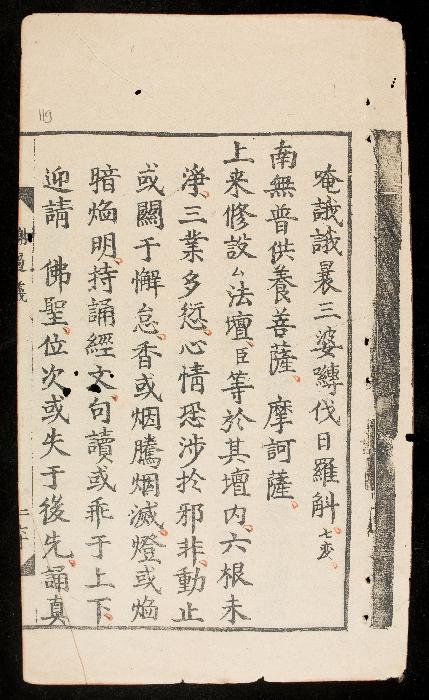 唵誐誐曩三婆嚩伐日羅斛七变
南無普供養菩薩摩訶薩
上来修設厶法壇臣等於其壇内六根未
淨三業多愆心情恐涉於邪非動止
或關于懈怠香或烟騰烟滅燈或焰
暗焰明持誦經文句讀或乖于上下
迎請佛聖位次或失于後先誦真
119